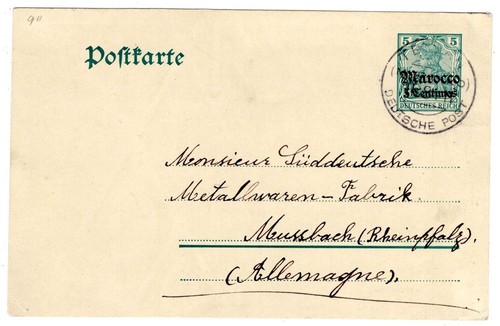 9"
Postkarte
5 5
Marocco
5 Centimes
DEUTSCHES REICH
DEUTSCHE POST
Monsieur Süddeutsche
Metallwaren-Fabrik
Mussbach (Rheinpfalz).
(Allemagne).